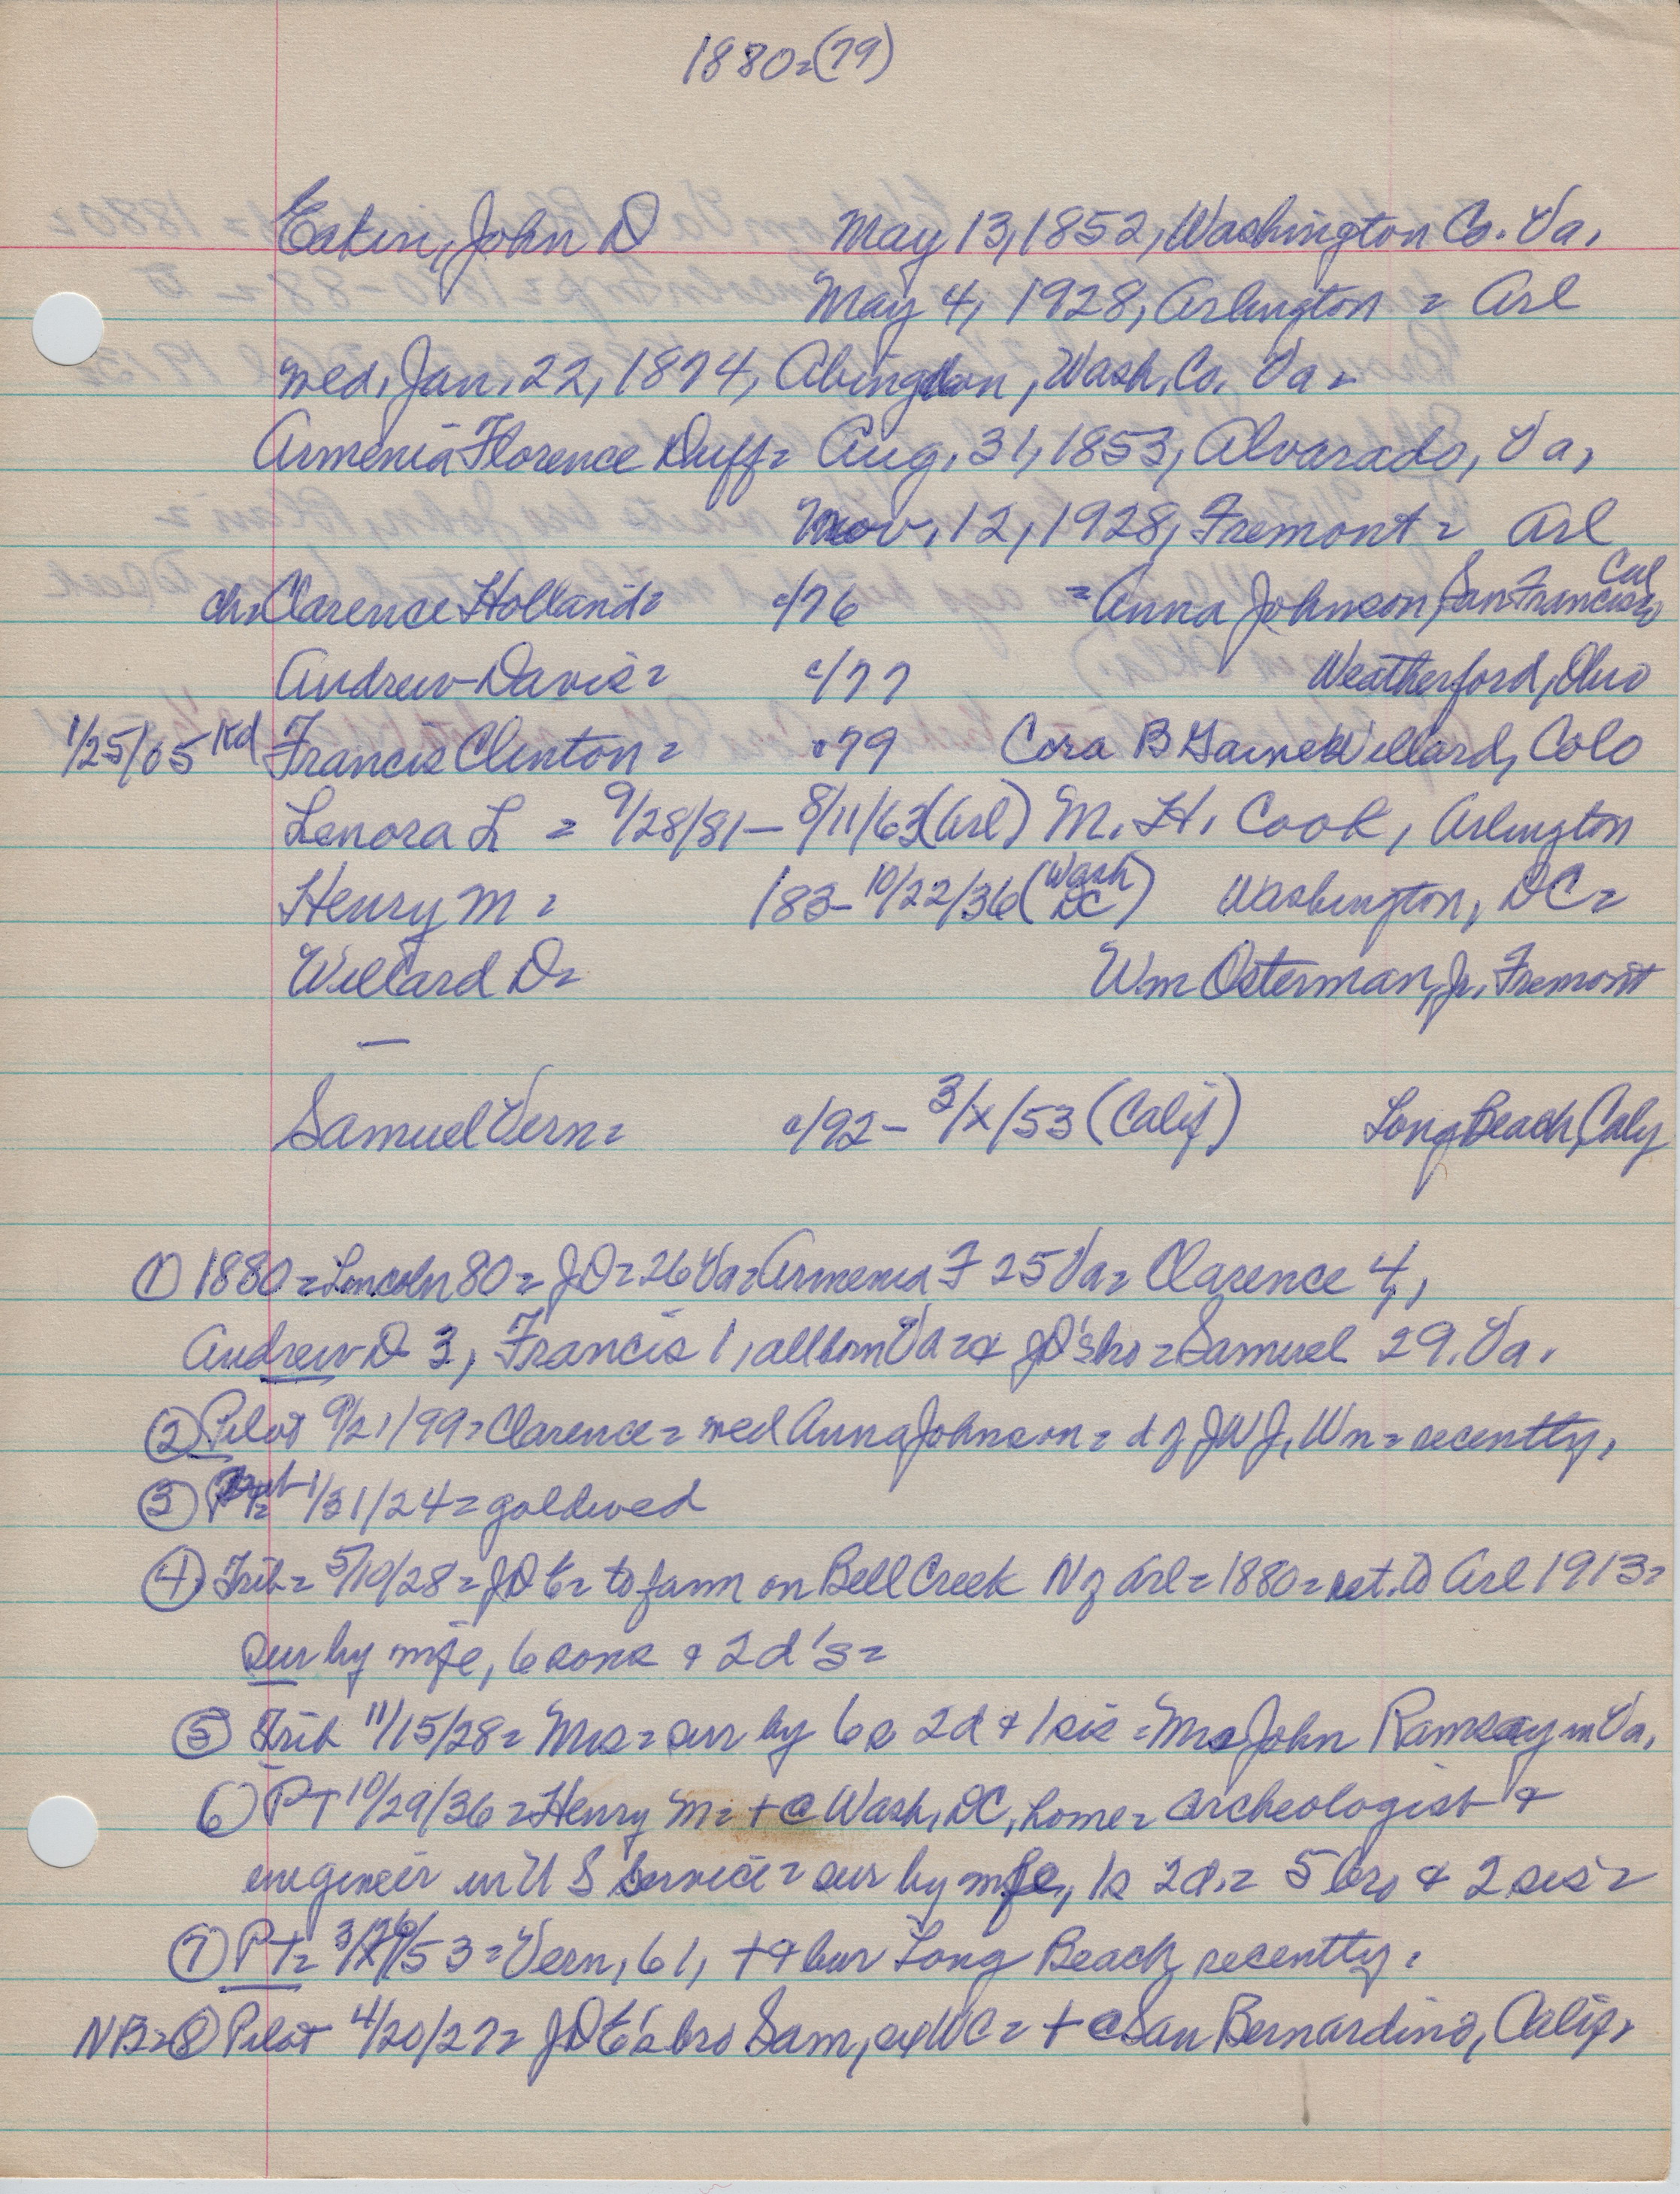 1880=(79)
Eakin, John D May 13, 1852, Washington Co. Va.
May 4, 1928, Arlington = Arl
med. Jan. 22, 1874, Abingdon, Wash. Co. Va =
Armenia Florence Duff = Aug. 31, 1853, Alvarado, Va,
Nov. 12, 1928, Fremont = Arl
ch= Clarence Holland = c/76 = Anna Johnson, San Francisco Cal
Andrew Davis = c/77 Weatherford, Ohio
1/25/05 Kd Francis Clinton = c79 Cora B Willard, Colo
Lenora L = 9/28/81 – 8/11/63 (Arl) M. H. Cook, Arlington
Henry M = /83 – 10/22/36 (Wash DC) Washington, DC =
Willard D = Wm Osterman, Jr. Fremont
—
Samuel Vern = c/92 – 3/x/53 (Calif) Long Beach, Calif
① 1880 = Lincoln 80 = JD = 26 Va = Armenia F 25 Va = Clarence 4,
Andrew D 3, Francis 1, all born Va = & JD's bro = Samuel 29. Va.
② Pilot 9/21/99 = Clarence = med Anna Johnson = d of JWJ, Wn = recently,
③ 1/31/24 = gold wed
④ Trib = 5/10/28 = JD E = to farm on Bell Creek N of Arl = 1880 = ret. to Arl 1913 =
sur by wife, 6 sons & 2 d's =
⑤ Trib 11/15/28 = Mrs = sur by 6 s 2d & 1 sis = Mrs John Ramsay in Va.
⑥ PT 10/29/36 = Henry M = + @ Wash, DC, home = archeologist &
engineer in U S Service = sur by wife, 1s 2d. = 5 bro & 2 sis =
⑦ PT = 3/26/53 = Vern, 61, + & bur Long Beach, recently.
NB = ⑧ Pilot 4/20/27 = JD E's bro Sam, ex WC = + @ San Bernardino, Calif.